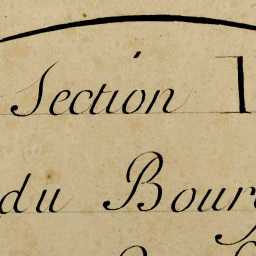 Section 1
du Bourg